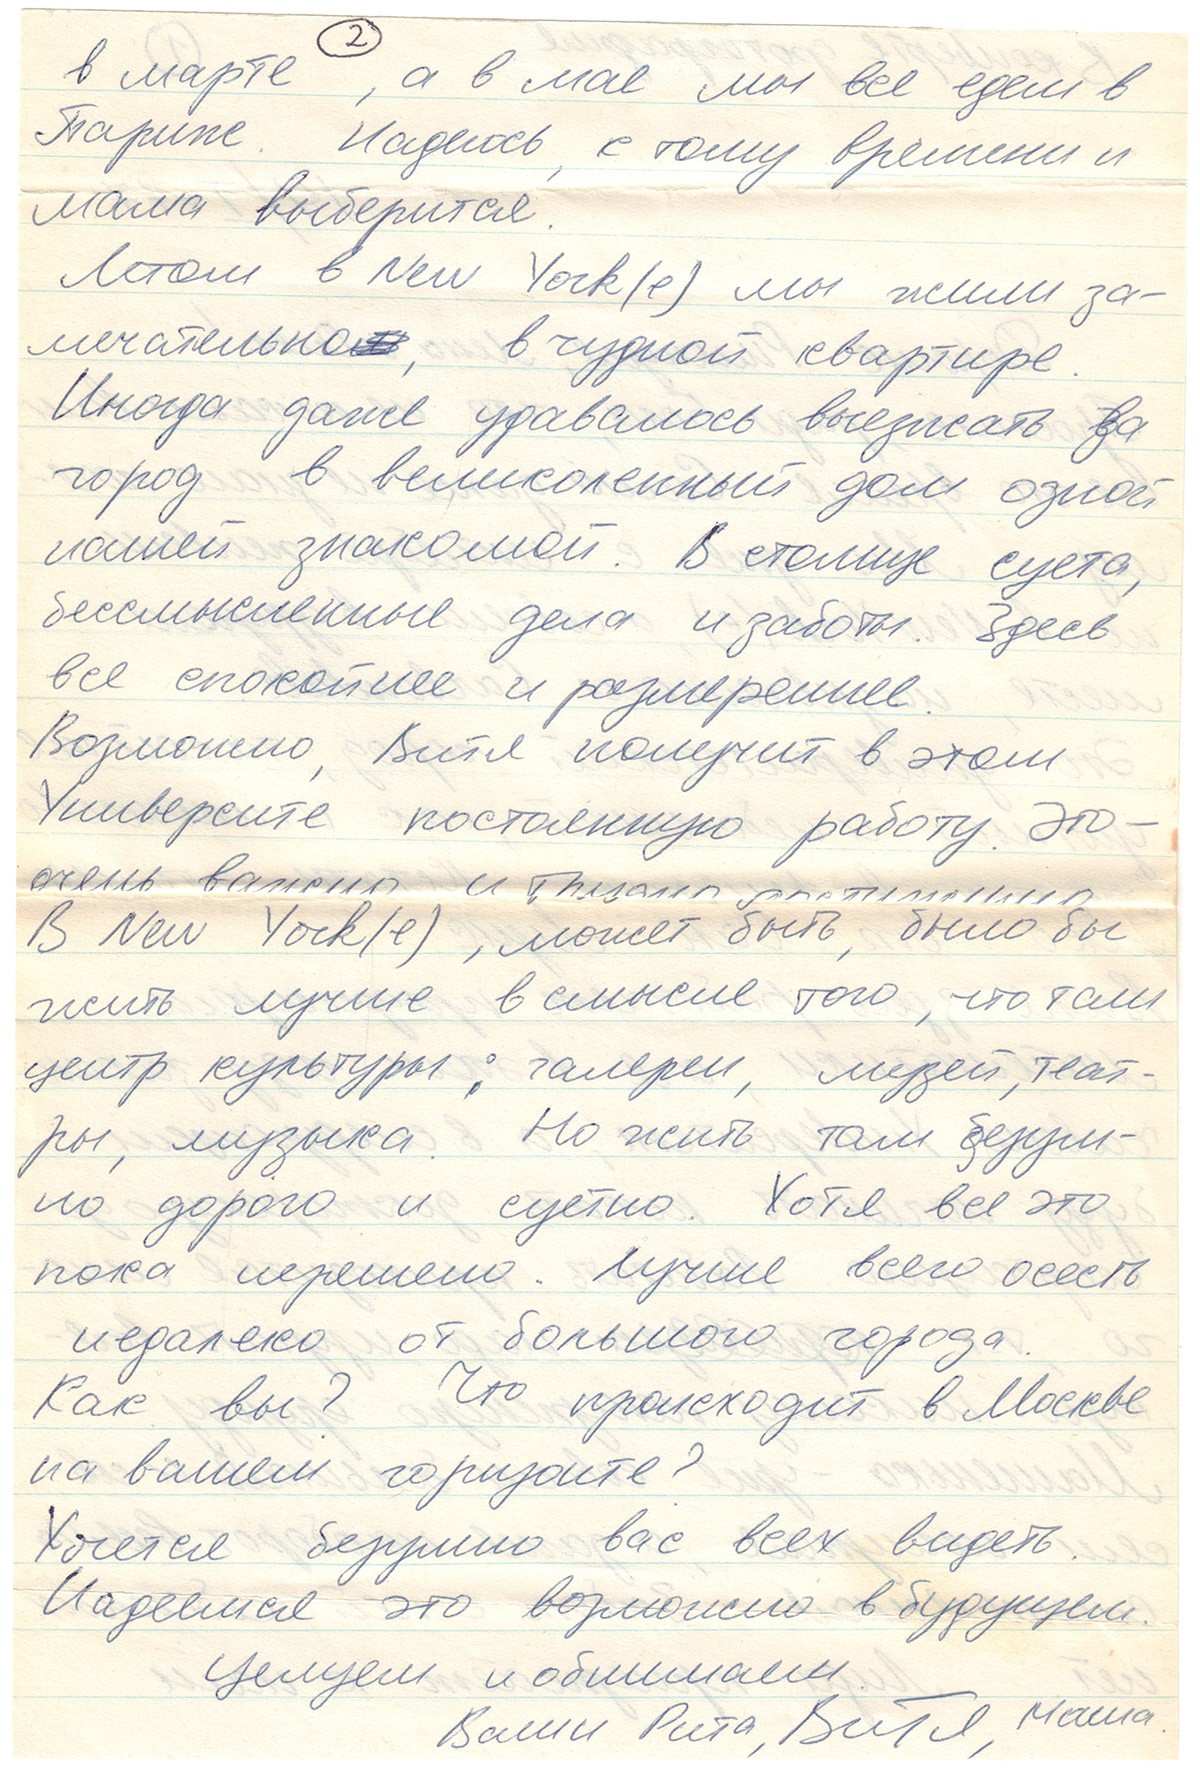 2
в марте, а в мае мы все едем в
Париж. Надеюсь, к тому времени и
мама выберится.
Летом в New York(е) мы жили за-
мечательно, в чудной квартире.
Иногда даже удавалось выезжать за
город в великоленный дом одной
нашей знакомой. В столице суета,
бессмысленные дела и заботы. Здесь
все спокойнее и размереннее.
Возможно, Витя получит в этом
Университе постоянную работу. Это –
очень важно и
В New York(е), может быть, было бы
жить лучше в смысле того, что там
центр культуры: галереи, музеи, теат-
ры, музыка. Но жить там безум-
но дорого и суетно. Хотя все это
пока нерешено. Лучше всего осесть
недалеко от большого города.
Как вы? Что происходит в Москве
на вашем горизонте?
Хочется безумно вас всех видеть.
Надеемся это возможно в будущем.
Целуем и обнимаем.
Ваши Рита, Витя, Маша.